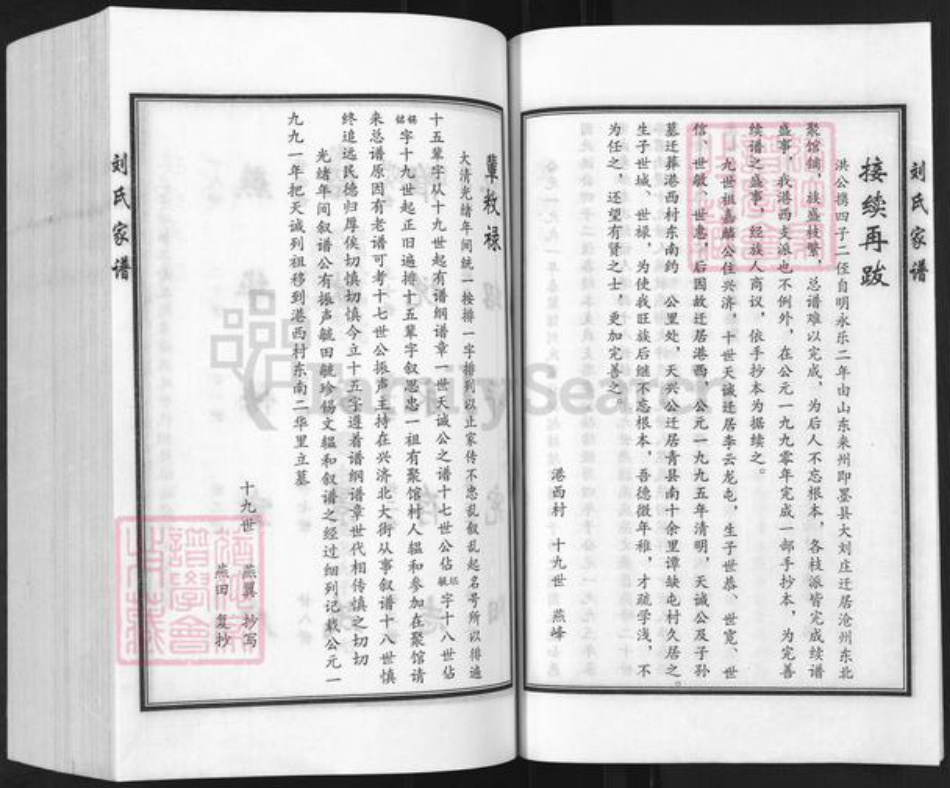 刘氏家谱
接续再跋
洪公携四子二侄自明永乐二年由山东来州即墨县大刘庄迁居沧州东北
聚馆镇，族盛枝繁，总谱难以完成，为后人不忘根本，各枝派皆完成续谱
盛事，我港西支派也不例外，在公元一九九零年完成一部手抄本，为完善
续谱之盛事，经族人商议，依手抄本为据续之。
九世祖嘉麟公住兴济，十世天诚迁居李云龙屯，生子世恭、世宽、世
信、世敏、世惠，后因故迁居港西，公元一九九五年清明，天诚公及子孙
墓迁葬港西村东南约一公里处，天兴公迁居青县南十余里谭缺屯村久居之。
生子世城、世禄，为使我旺族后继不忘根本，吾德微年稚，才疏学浅，不
为任之，还望有贤之士，更加完善之。
港西村 十九世 燕峰
辈叙禄
大清光绪年间统一按排一字排列以止家传不忠乱叙乱起名号所以排遍
十五辈字从十九世起有谱纲谱章一世天诚公之谱十七世公佔毓坯字十八世佔
锡佑字十九世起正旧遍排十五辈字叙思忠一祖有聚馆村人韫和参加在聚馆请
来总谱原因有老谱可考十七世公振声主持在兴济北大街从事叙谱十八世慎
终追远民德归厚俟切慎切慎今立十五字遵着谱纲谱章世代相传慎之切切
光绪年间叙谱公有振声毓田毓珍锡文韫和叙谱之经过细列记载公元一
九九一年把天诚列祖移到港西村东南二华里立墓
十九世 燕翼 抄写
燕田 复抄
刘氏家谱
FamilySearch